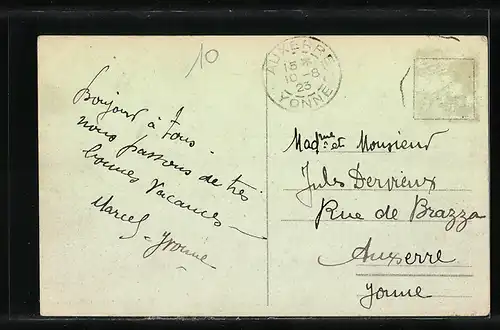 10
AUXERRE
15 *
10-8
23
YONNE
Bonjour à tous -
nous passons de très
bonnes vacances -
Marcel - Yvonne
Madme et Monsieur
Jules
Rue de Brazza
Auxerre
Yonne